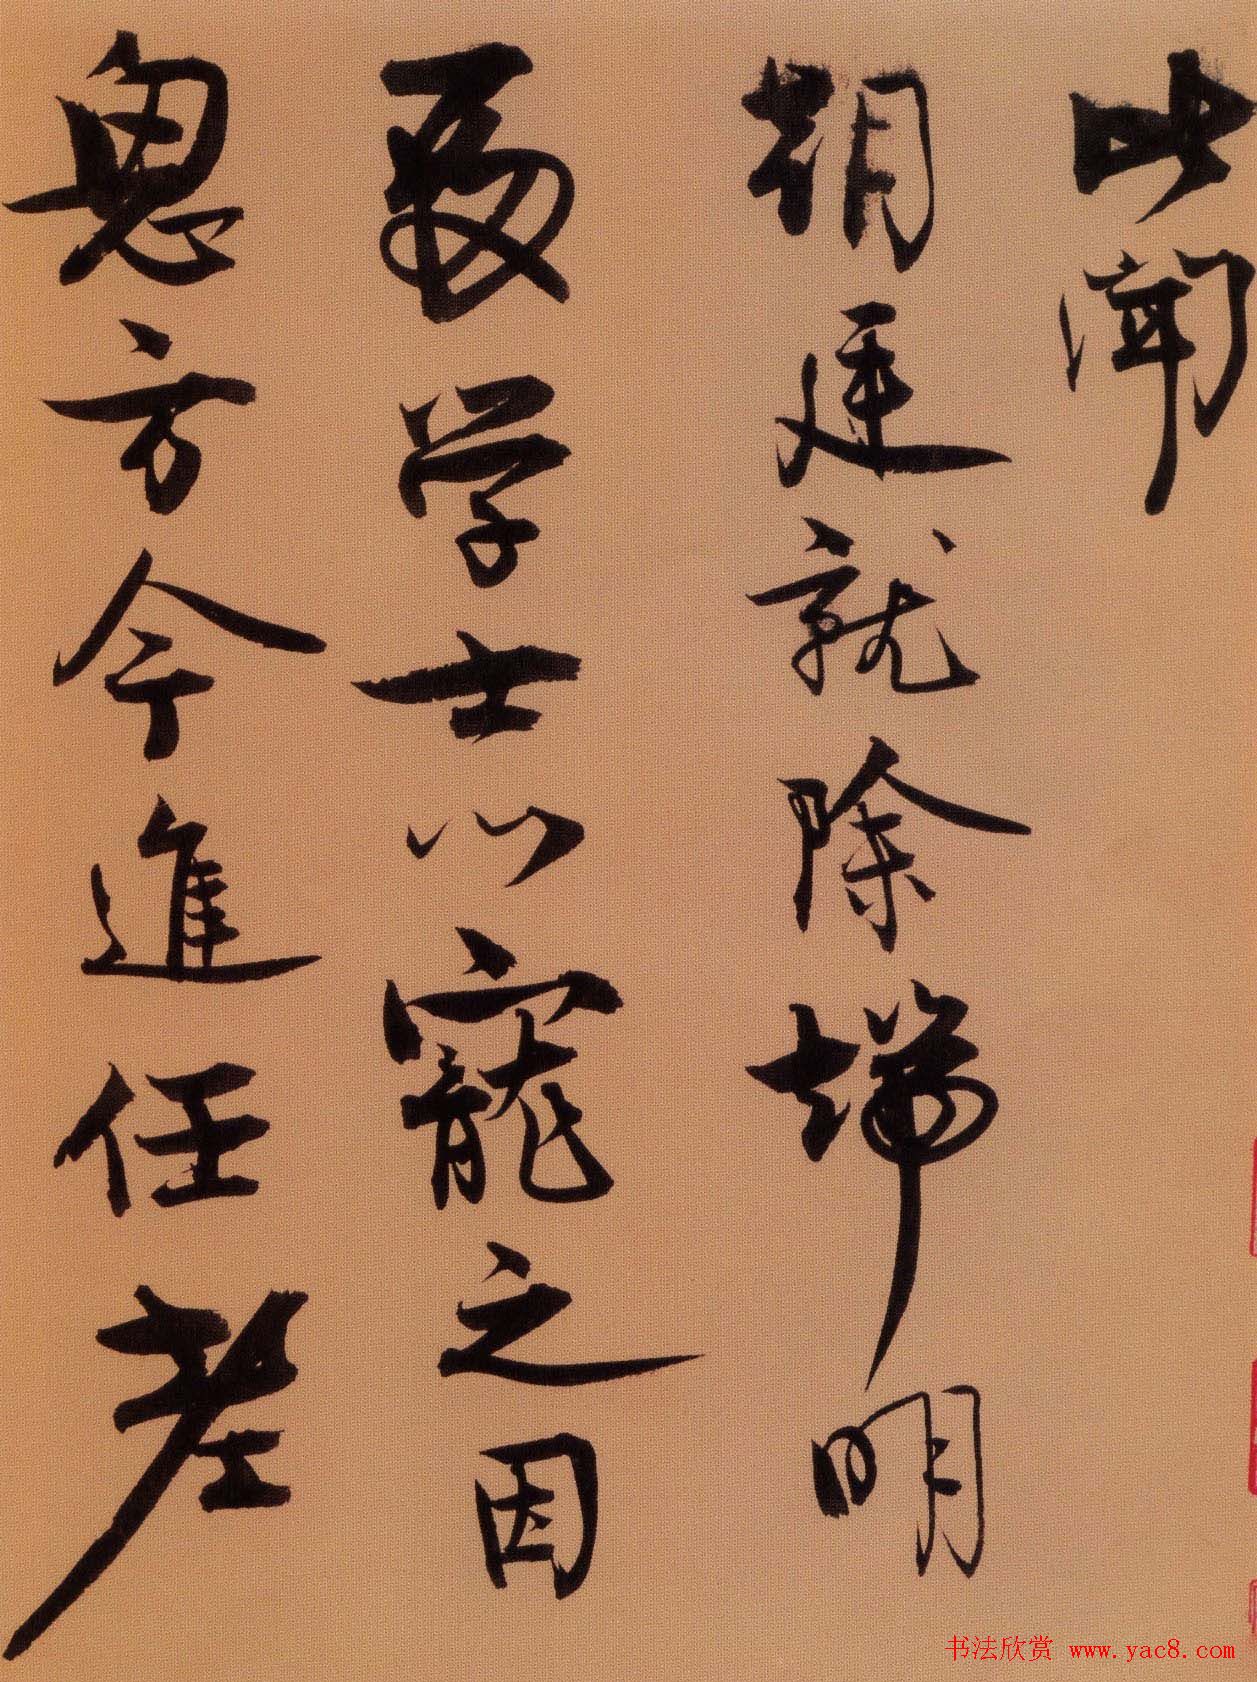 此聞
朝廷就除端明
殿学士以寵之因
思方今進任老
书法欣赏 www.yac8.com